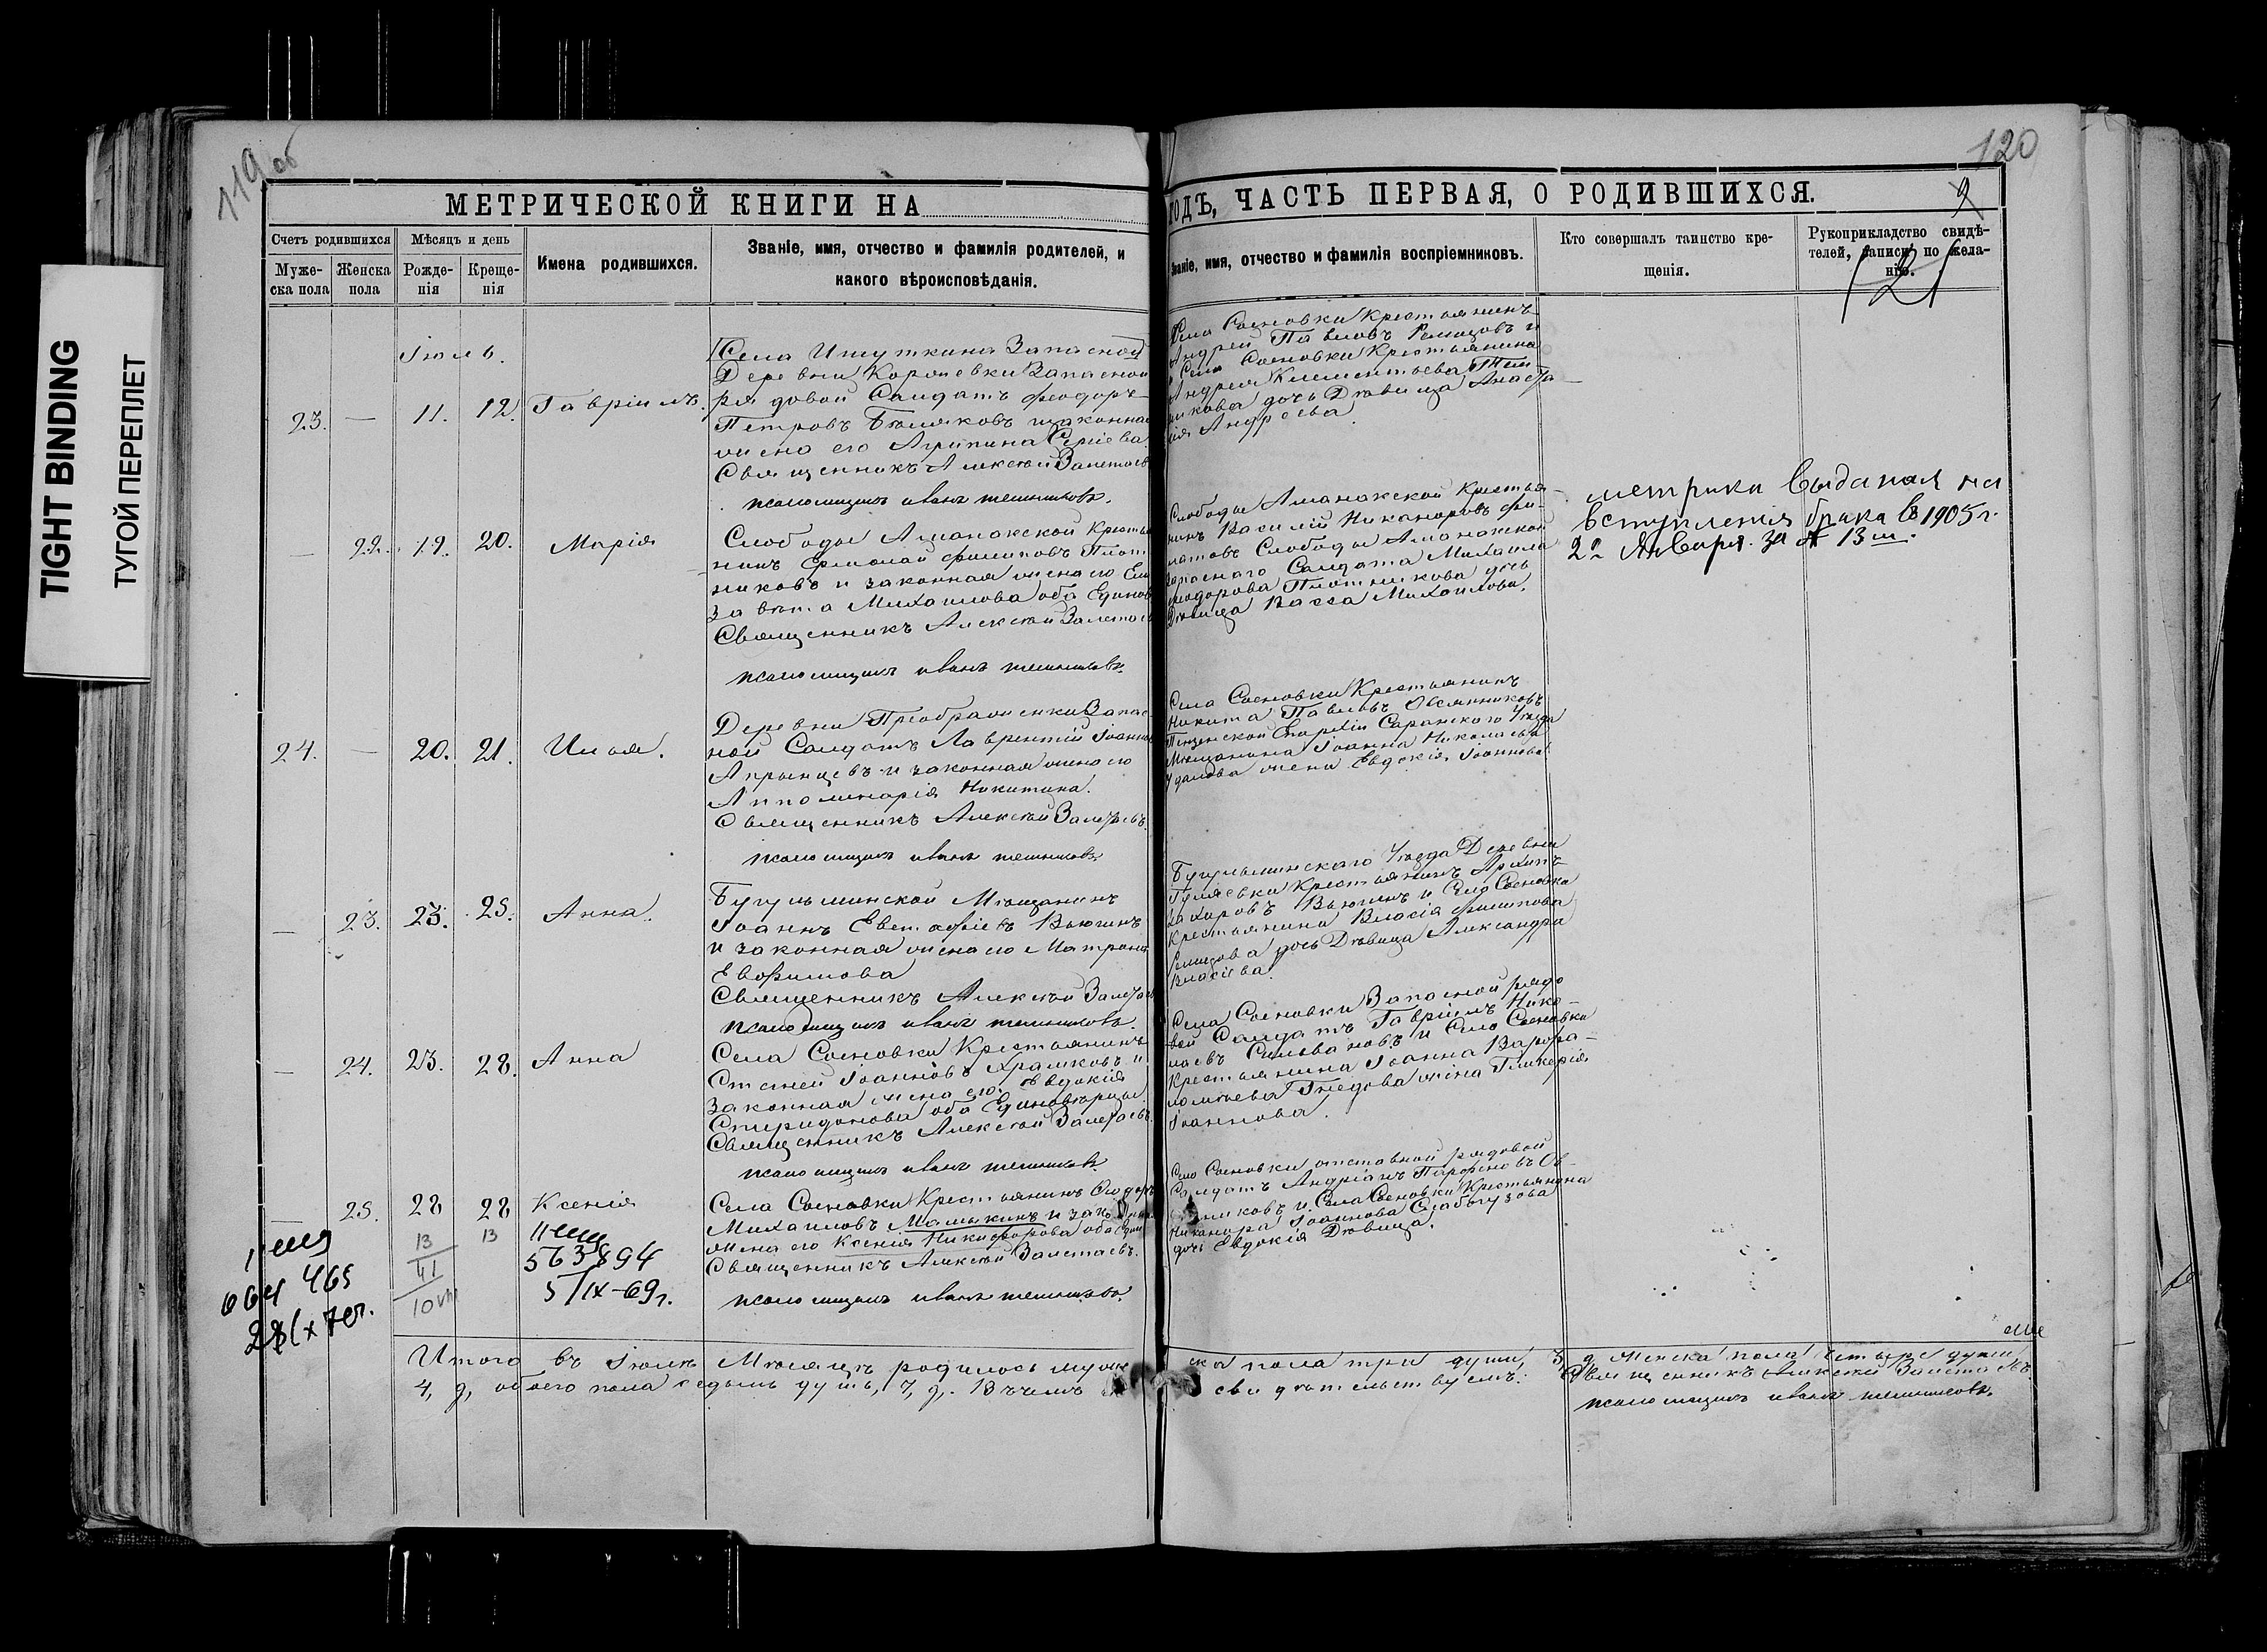 119 об
120
МЕТРИЧЕСКОЙ КНИГИ НА
ГОДЪ, ЧАСТЬ ПЕРВАЯ, О РОДИВШИХСЯ.
9
121
TIGHT BINDING
ТУГОЙ ПЕРЕПЛЕТ
Счетъ родившихся
Муже-
ска пола
Женска
пола
Мѣсяцъ и день
Рожде-
нія
Креще-
нія
Имена родившихся.
Званіе, имя, отчество и фамилія родителей, и
какого вѣроисповѣданія.
Званіе, имя, отчество и фамилія воспріемниковъ.
Кто совершалъ таинство кре-
щенія.
Рукоприкладство свидѣ-
телей, записи по жела-
нію.
Іюль.
23. — 11. 12. Гавріилъ.
Села Ишуткина Запасной
Деревни Королевки Запасной
рядовой Салдатъ Феодоръ
Петровъ Бѣляковъ и законная
жена его Агрипина Сергіева
Священникъ Алексѣй Залетаевъ
псаломщикъ иванъ
Села Сосновки Крестьянинъ
Андрей Павловъ и
Села Сосновки Крестьянина
Андрея Климентьева
дочь Дѣвица Анаста-
сія Андреева.
— 22. 19. 20. Марія
Слободы Аманакской Кресть
нинъ Ермолай Филиповъ Плот
никовъ и законная жена его Ели
завета Михаилова оба Единов
Священникъ Алексѣй Залетаев
псаломщикъ иванъ
Слободы Аманакской Крестья-
нинъ Василій Никаноровъ Фи-
латовъ Слободы Аманакской
запаснаго Салдата Михаила
Феодорова Плотникова дочь
Дѣвица Васса Михаилова.
метрики выданая на
вступления брака в 1905 г.
2го Января за № 13 м.
24. — 20. 21. Илья.
Деревни Преображенки Запас
ной Салдатъ Лаврентій Іоаннов
и законная жена его
Апполинарія Никитина.
Священникъ Алексѣй Залетаевъ
псаломщикъ иванъ
Села Сосновки Крестьянинъ
Никита Павловъ Овсянниковъ
Пензенской Епархіи Саранскаго Уѣзда
Мѣщанина Іоанна Николаева
Удалова жена Евдокія Іоаннова
— 23. 23. 25. Анна.
Бугульминской Мѣщанинъ
Іоаннъ Евстафіевъ Вьюгинъ
и законная жена его Матрона
Евфимова
Священникъ Алексѣй Залетаев
псаломщикъ иванъ
Бугульминскаго Уѣзда Деревни
Гуляевки Крестьянинъ Архипъ
Захаровъ Вьюгинъ и Села Сосновки
Крестьянина Власія Филипова
дочь Дѣвица Александра
Власіева.
— 24. 23. 28. Анна
Села Сосновки Крестьянинъ
Іоанновъ Храмковъ и
Законная жена его Евдокія
Спиридонова оба Единовѣрцы.
Священникъ Алексѣй Залетаевъ
псаломщикъ иванъ
Села Сосновки Запасной рядо
вой Салдатъ Гавріилъ Нико-
лаевъ Силвановъ и Села Сосновки
Крестьянина Іоанна Варфо-
ломѣева Гнедова жена Гликерія
Іоаннова.
— 25. 28 28 Ксенія
Села Сосновки Крестьянинъ Феодоръ
Михаиловъ Малыкинъ и законная
жена его Ксенія Никифорова оба Един
Священникъ Алексѣй Залетаевъ.
псаломщикъ иванъ
Села Сосновки отставной рядовой
Салдатъ Андріанъ Парфеновъ Ов-
сянниковъ и Села Сосновки Крестьянина
Никанора Іоаннова Слабогузова
дочь Евдокія Дѣвица.
13 13
41
563894
5/IX-69г.
465
Итого въ Іюлѣ Мѣсяцѣ родилось муже ска пола три души, 3 д. Женска пола четыре души
4, д, обоего пола седьмь душь, 7, д. В чемъ и свидѣтельствуемъ: Священникъ Алексѣй Залетаевъ
псаломщикъ иванъ